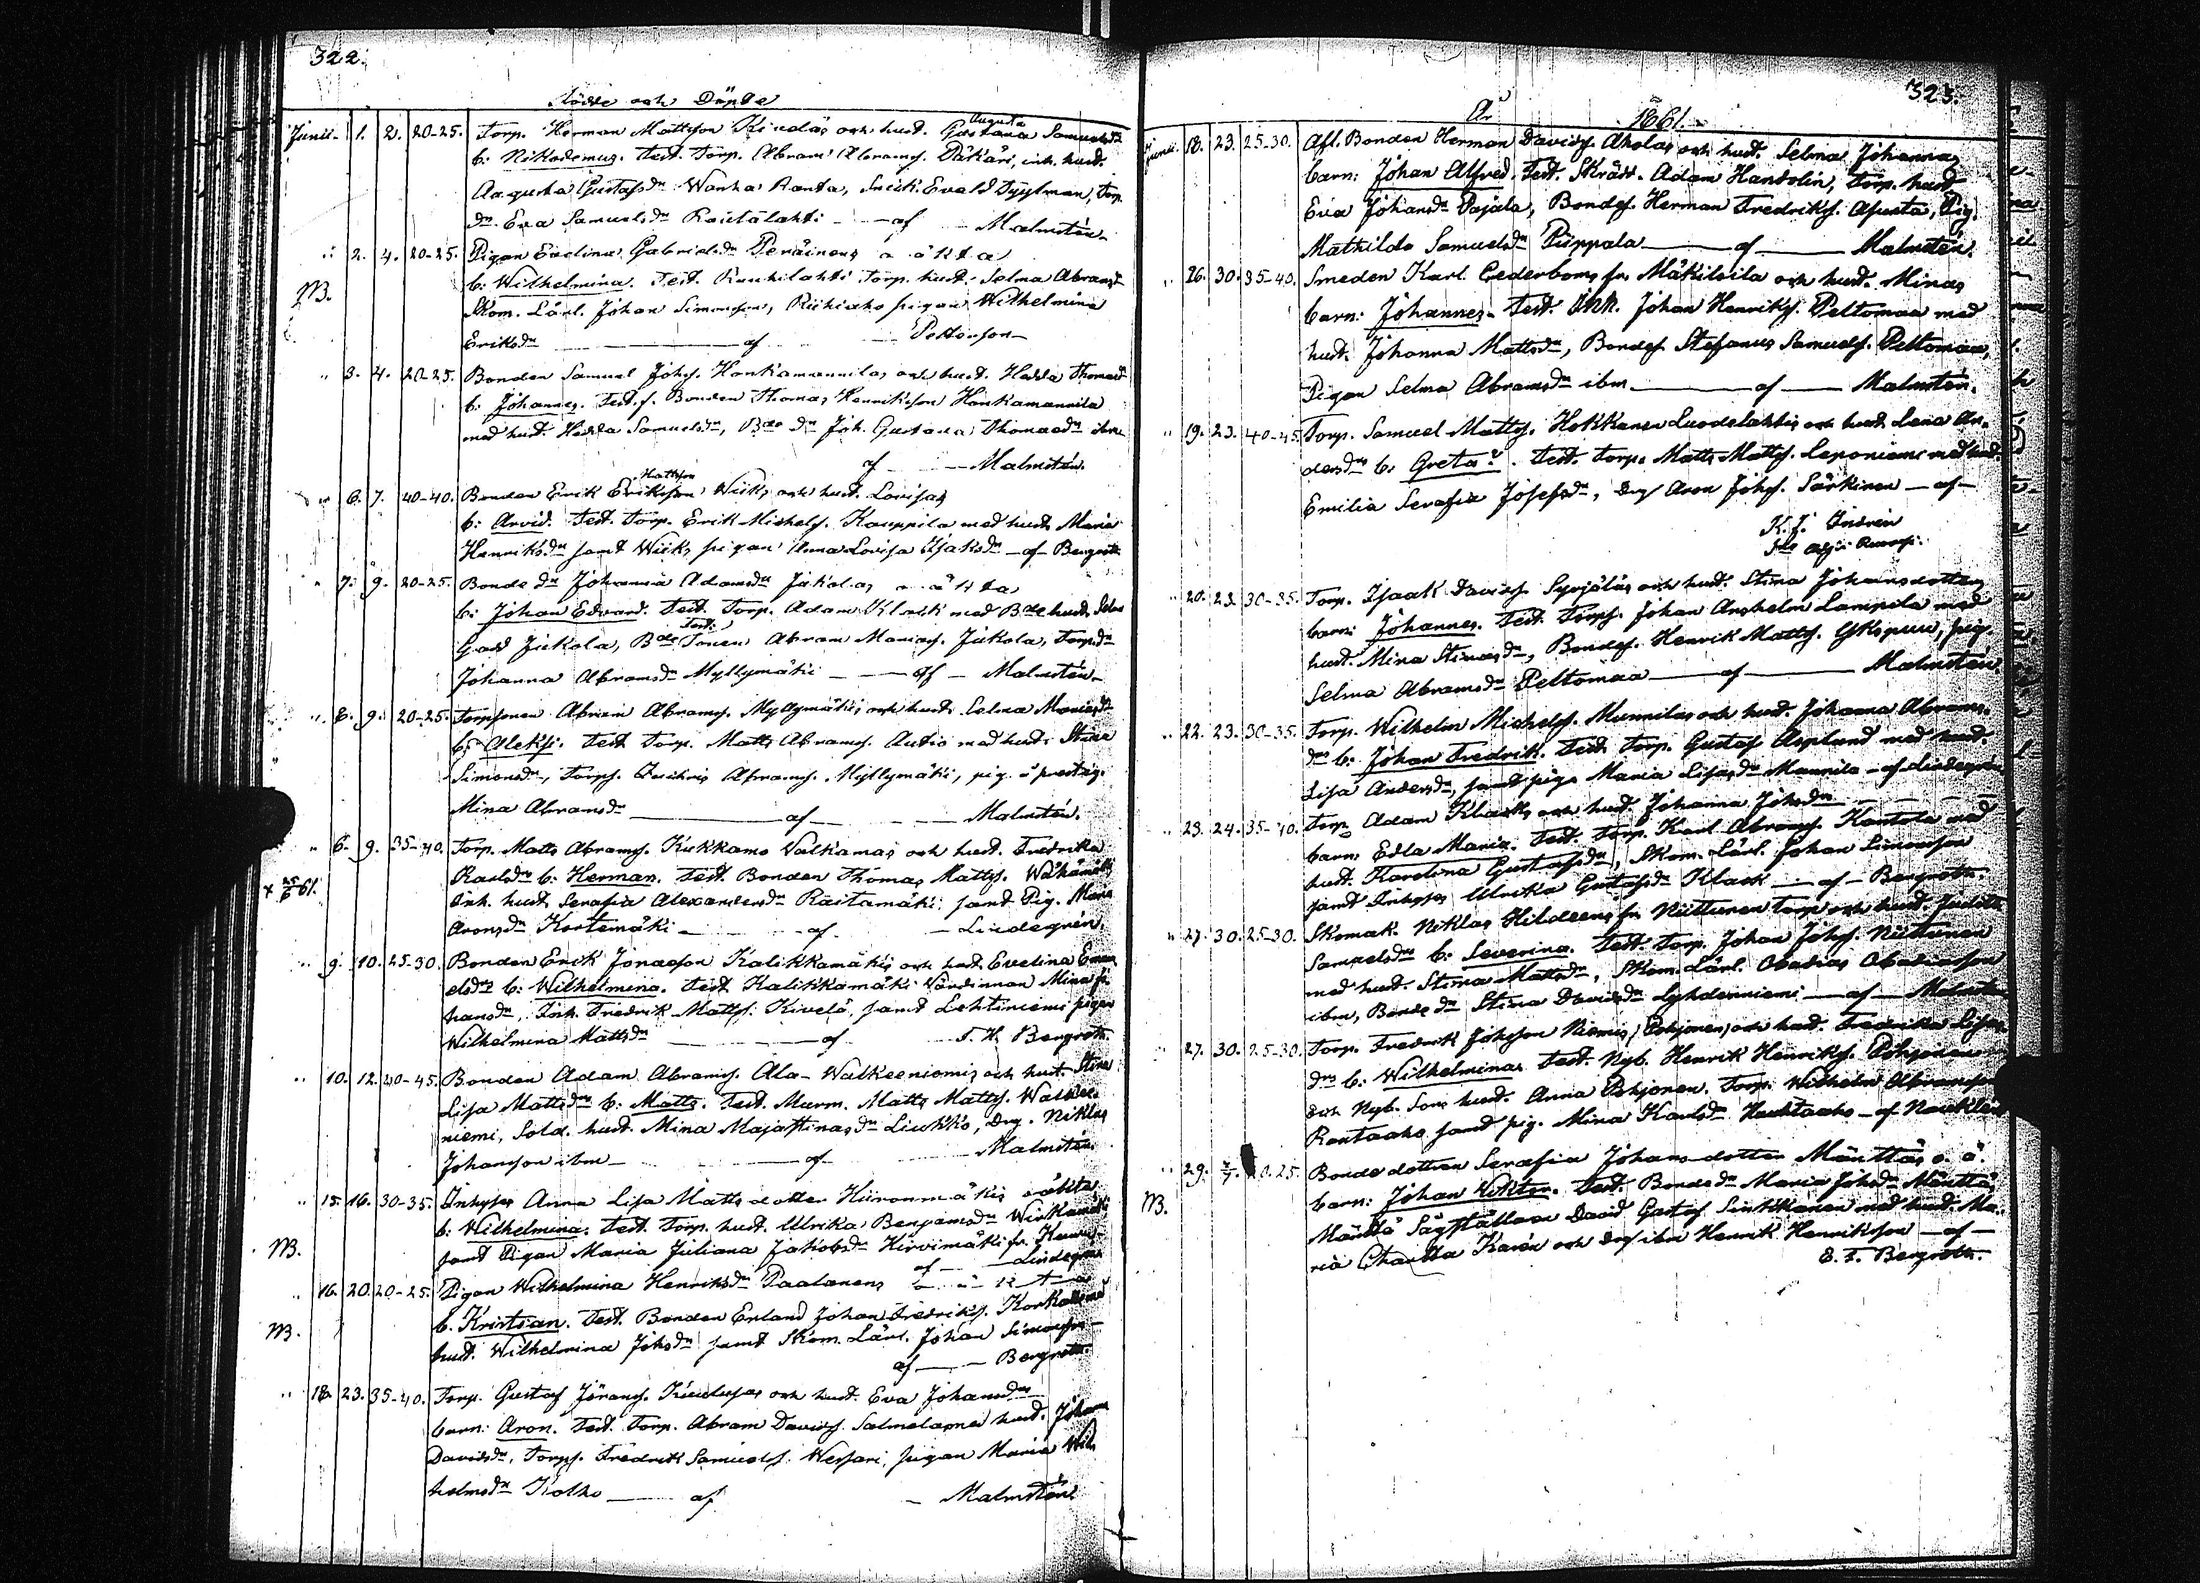 322.
Födde och Döpte
Junii. 1. 2. 20-25. Torp. Herman Mattsson Kindäs och hust. Gustava Augusta Samuelsdr
b: Nikodemus. Test. Torp. Abram Abramss. Päkäri, inh. hust.
Augusta Gustafsdr Wanha Ranta, Snick. Evald Tyylman, Torp.
dr. Eva Samuelsdr Rautalahti - af - Malmstén.
" 2. 4. 20-25. Pigan Evelina Gabrielsdr Peräinens o äkta
NB. b: Wilhelmina. Test. Raukilahti Torp. hust. Selma Abramsdr
Skom. Lärl. Johan Simonsson, Riihiaho pigan Wilhelmina
Eriksdr - af - Pettersson
" 3. 4. 20-25. Bonden Samuel Johss. Honkamannilas och hust. Hedda Thomasdr
b: Johannes. Test. f. Bonden Thomas Henriksson Honkamannila
med hust. Hedda Samuelsdr, Bde dr Joh. Gustava Thomasdr ibm
af - Malmstén.
" 6. 7. 40-40. Bonden Erik Eriksson Mattsson Wiiks och hust. Lovisas
b: Arvid. Test. Torp. Erik Michelss. Kauppila med hust. Maria
Henriksdr samt Wiiks pigan Anna Lovisa Isaksdr - af - Bergroth
" 7. 9. 20-25. Bonde dr Johanna Adamsdr Jokelas o äkta
b: Johan Edvard. Test. Torp. Adam Klack med Bde hust. Selma
Gad Jukola, Bde Sonen Abram Mariass. Jukola, Torp.dr
Johanna Abramsdr Myllymäki - af - Malmstén.
" 8. 9. 20-25. Torpsonen Abram Abramss. Myllymäkis och hust. Selma Mariasdr
b: Aleksi. Test. Torp. Matts Abramss. Autio med hust. Stina
Simonsdr, Torps. Abramss. Myllymäki, pig. i prestg.
Mina Abramsdr - af - Malmstén.
" 6. 9. 35-40. Torp. Matts Abramss. Kukkamo Valkamas och hust. Fredrika
+ 25/6 61. Karlsdr b: Herman. Test. Bonden Thomas Mattss. Wähämäki
Inh. hust. Serafia Alexandersdr Raitamäki, samt Pig. Maria
Aronsdr Kortemäki - af - Lindegrén.
" 9. 10. 25-30. Bonden Erik Jonasson Kalikkamäkis och hust. Evelina Eman
elsdrs b: Wilhelmina. Test. Kalikkamäki Värdinnan Mina Jo
hansdr, Inh. Fredrik Mattss. Kivelä, samt Lehtiniemi pigan
Wilhelmina Mattsdr - af - F. H. Bergroth.
" 10. 12. 40-45. Bonden Adam Abramss. Ala-Walkeeniemis och hust. Stina
Lisa Mattsdrs b: Matts. Test. Murm. Matts Mattss. Walkee-
niemi, Sold. hust. Mina Majastinasdr Liukko, Drg. Niklas
Johansson ibm - af - Malmstén.
" 15. 16. 30-35. Inhyses Anna Lisa Mattsdotter Hiironmäkis oäkta
b: Wilhelmina. Test. Torp. hust. Ulrika Benjamsdr Wirkamäki
NB. samt Pigan Maria Juliana Jakobsdr Hirvimäki fr.
af - Lindegrén
" 16. 20. 20-25. Pigan Wilhelmina Henriksdr Paalanens o äkta
NB. b. Kristian. Test. Bonden Erland Johan Fredrikss. Korkalamed
hust. Wilhelmina Johsdr samt Skom. Lärl. Johan Simonsson
af - Bergroth.
" 18. 23. 35-40. Torp. Gustaf Jöranss. och hust. Eva Johansdrs
barn: Aron. Test. Torp. Abram Davidss. Salmela med hust. Johanna
Davidsdr, Torps. Fredrik Samuelss. Wessari, pigan Maria Wil
helmsdr Kolho - af - Malmstén.
År 1861. 323.
Junii. 18. 23. 25-30. Afl. Bonden Herman Davidss. Aholas och hust. Selma Johannas
barn: Johan Alfred. Test. Skrädd. Adam Handolin, Torp. hust.
Eva Johansdr Pajala, Bondes. Herman Fredrikss. Apusta, Pig.
Mathilda Samuelsdr Piippola - af - Malmstén.
" 26. 30. 35-40. Smeden Karl Cederboms fr. Mäkiläila och hust. Minas
barn: Johannes. Test. Inh. Johan Henrikss. Peltomaa med
hust. Johanna Mattsdr, Bondes. Stefanus Samuelss. Peltomaa,
Pigan Selma Abramsdr ibm - af - Malmstén.
" 19. 23. 40-45. Torp. Samuel Mattss. Hokkanen Luodelahtis och hust. Lena An-
dersdrs b: Greta. Test. Torp. Matts Mattss. Leponiemi med hust.
Emilia Serafia Josefsdr, Drg Aron Johss. Särkinen - af -
K. J. Indrén
" 20. 23. 30-35. Torp. Isaak Davidss. Syrjäläs och hust. Stina Johansdotters
barn: Johannes. Test. Torps. Johan Anshelm Lampila med
hust. Mina Stinasdr, Bondes. Henrik Mattss. Ykspuu, pig.
Selma Abramsdr Peltomaa - af - Malmstén
" 22. 23. 30-35. Torp. Wilhelm Michelss. Munnilas och hust. Johanna Abrams-
drs b: Johan Fredrik. Test. Torp. Gustaf Asplund med hust.
Lisa Andersdr, samt piga Maria Lisasdr Mannila - af Lindegrén
" 23. 24. 35-40. Torp Adam Klacks och hust. Johanna Johsdrs
barn: Edla Maria. Test. Torp. Karl Abramss. Kantola med
hust. Karolina Gustafsdr, Skom. Lärl. Johan Simonsson
samt Inhyses Ulrika Gustafsdr Klack - af - Bergroth.
" 27. 30. 25-30. Skomak. Niklas Hildeens fr. Niittunen torp och hust. Judith
Samuelsdrs b: Severina. Test. Torp. Johan Johss. Niittunen
med hust. Stina Mattsdr, Skom. Lärl. Obadias Obadiasson
ibm, Bonde dr Stina Davidsdr Lyhdenniemi - af - Malmstén
" 27. 30. 25-30. Torp. Fredrik Johsson Niemis, Pohjonen, och hust. Fredrika Lisas
drs b: Wilhelmina. Test. Nyb. Henrik Henrikss. Pohjonen
och Nyb. Sons hust. Anna Pohjonen. Torp. Wilhelm Abramsson
Rantaaho samt pig. Mina Karlsdr Huuhtaaho - af Nauklér
" 29. 2/7. 20.25. Bondedottren Serafia Johansdotter Mänttäs o. ä.
NB. barn: Johan Wiktor. Test. Bonde dr Maria Johsdr Mänttä,
Mänttä Sågställare David Gustafs. Sinkkonen med hust. Ma-
ria Charlotta Karén och drg ibm Henrik Henriksson - af -
E. F. Bergroth.